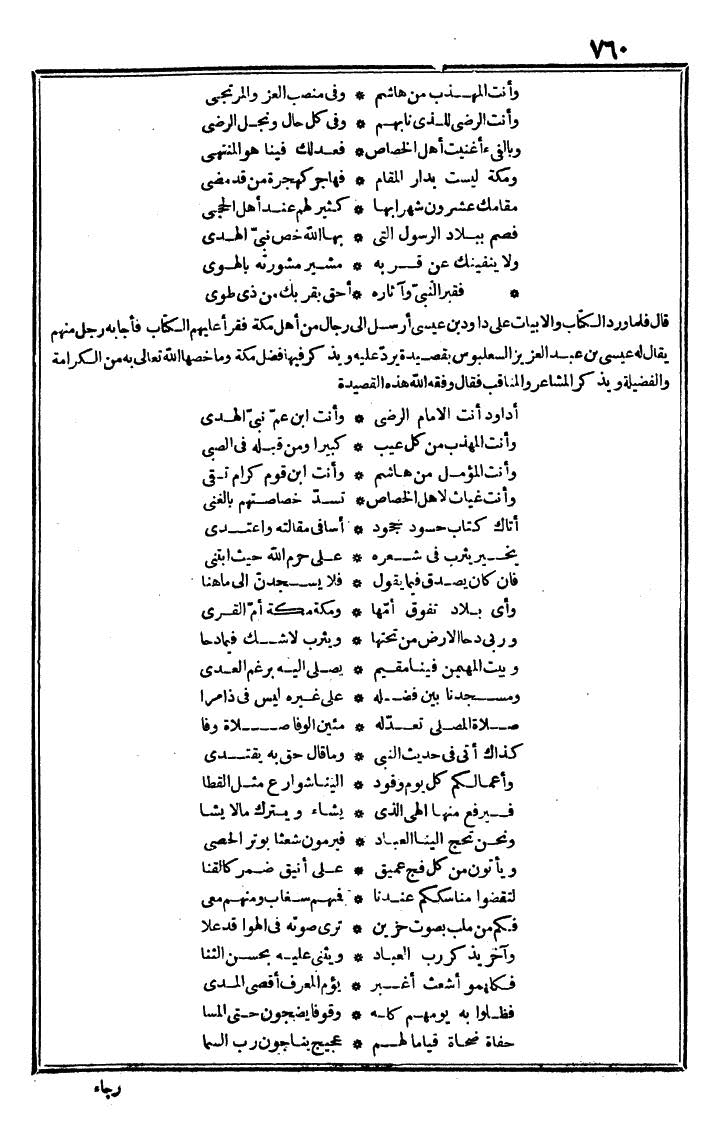 ٧٦٠
وأنت المهـذب من هاشم * وفى منصب العز والمرتجى
وأنت الرضى للـذى نابهـم * وفى كل حال ونجـل الرضى
وبالفىء أغنيت أهل الخصاص * فعـدلك فينا هو المنتهى
ومكة ليست بدار المقام * فهاجر كهجرة من قد مضى
مقامك عشـرون شهرا بها * كثير لهم عنـد أهل الحجى
فصم ببـلاد الرسول التى * بها الله خص نبىّ الهـدى
ولا ينفينك عن قـربه * مشير مشورته بالهـوى
* فقبر النبىّ وآثاره * أحق بقربك من ذى طوى
قال فلما ورد الكتاب والابيات على داود بن عيسى أرسـل الى رجال من أهل مكة فقرأ عليهم الكتاب فأجابه رجل منهم
يقال له عيسى بن عبـد العزيز السعلبوس بقصيدة يردّ عليه ويذكر فيها فضل مكة وما خصها الله تعالى به من الكرامة
والفضيلة ويذكر المشاعر والمناقب فقال وفقه الله هذه القصيدة
أداود أنت الامام الرضى * وأنت ابن عمّ نبىّ الهـدى
وأنت المهذب من كل عيب * كبيرا ومن قبـله فى الصبى
وأنت المؤمـل من هـاشم * وأنت ابن قوم كرام تـقى
وأنت غياث لاهل الخصاص * تسدّ خصاصتهم بالغنى
أتاك كتاب حسود جحود * أسا فى مقالته واعتـدى
يخـير يثرب فى شـعره * عـلى حرم الله حيث ابتنى
فان كان يصـدق فيما يقول * فلا يسـجدنّ الى ما هنا
وأى بـلاد تفوق أمّها * ومكة مكة أمّ القـرى
وربى دحا الارض من تحتها * ويثرب لا شـك فيما دحا
وبيت المهيمن فينـا مقـيم * يصـلى اليـه برغم العـدى
ومسـجدنا بين فضـله * على غـيره ليس فى ذا مرا
صـلاة المصـلى تعـدّ له * مئين الوفا صـلاة وفا
كذاك أتى فى حديث النبى * وما قال حق به يقتـدى
وأعمـالكم كل يوم وفود * الينا شوارع مثـل القطا
فـيرفع منهـا الهى الذى * يشاء ويـترك ما لا يشـا
ونحـن تحج الينـا العبـاد * فيرمون شعثا بوتر الحصى
ويأتون من كل فج عميق * عـلى أنيق ضمـر كالقنا
لتقضوا مناسككم عنـدنا * فمنهم سـغاب ومنهم معى
فكم من ملب بصوت حزين * ترى صوته فى الهوا قد علا
وآخر يذكر رب العباد * ويثنى عليـه بحسن الثنا
فكلهمو أشعث أغـبر * يؤم المعرف أقصى المـدى
فظـلوا به يومهـم كلـه * وقوفا يضجون حـتى المسا
حفاة ضحاة قياما لهـم * عجيج يناجون رب السما
رجاء